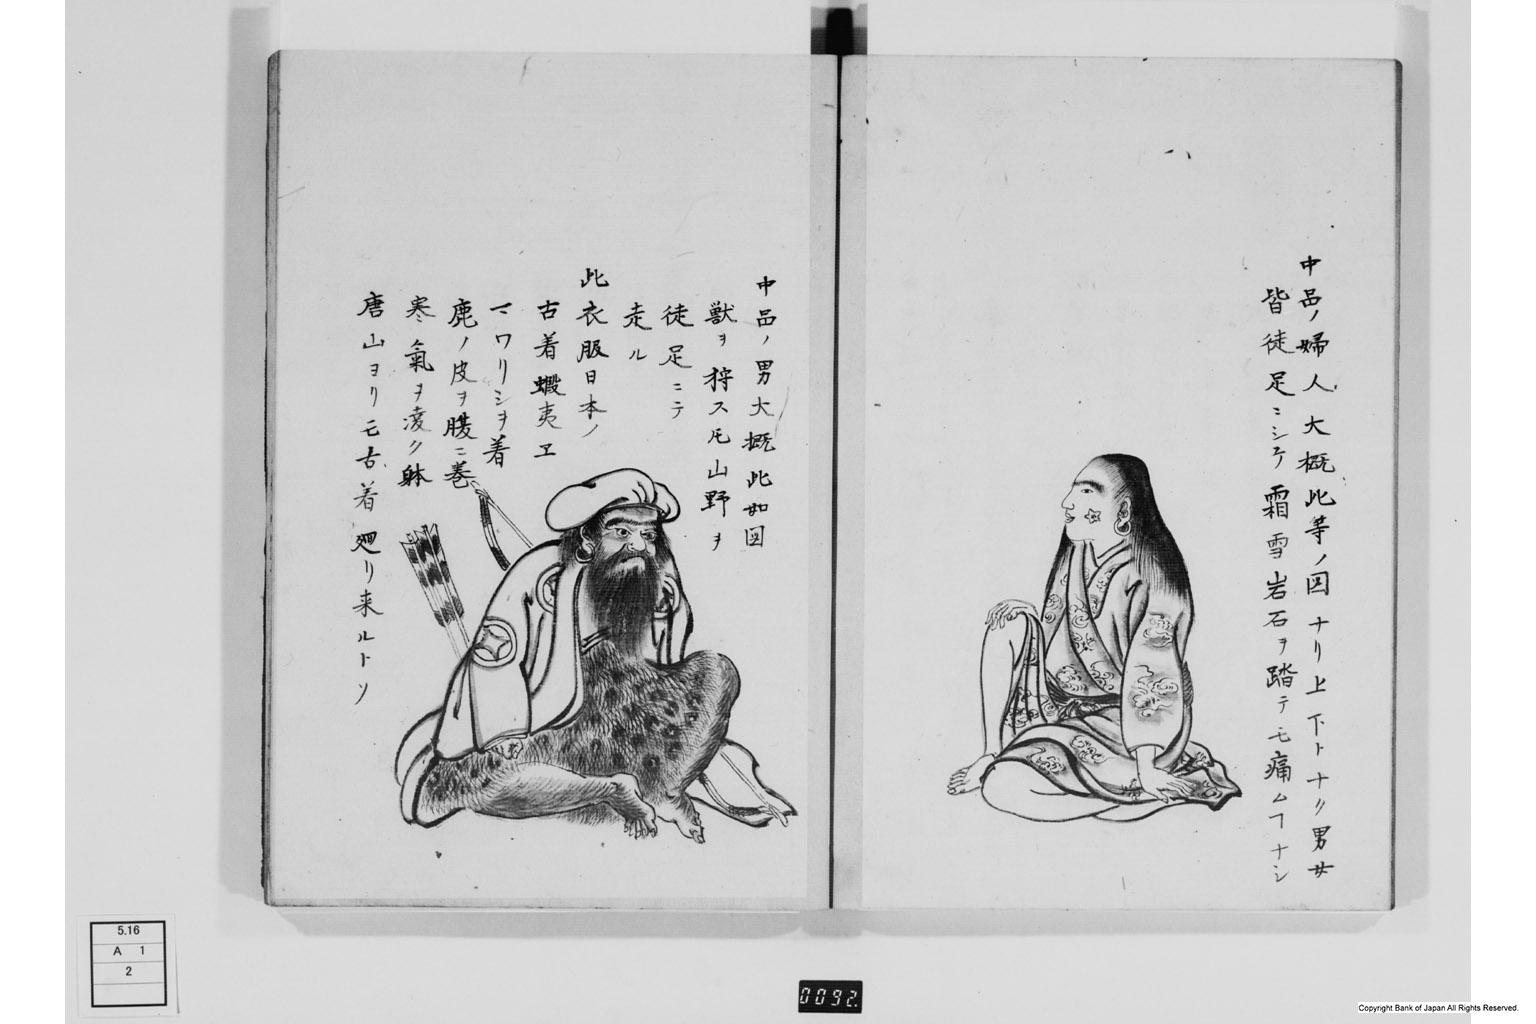 中品ノ婦人大概此等ノ図ナリ上下トナク男女
皆徒足ニシテ霜雪岩石ヲ踏テモ痛ムヿナシ
中品ノ男大概此如図
獣ヲ狩ス𪜈山野ヲ
徒足ニテ
走ル
此衣服日本ノ
古着蝦夷ヱ
マワリシヲ着
鹿ノ皮ヲ腰ニ巻
寒気ヲ凌ク躰
唐山ヨリモ古着廻リ来ルトソ
5.16
A 1
2
0092.
Copyright Bank of Japan All Rights Reserved.